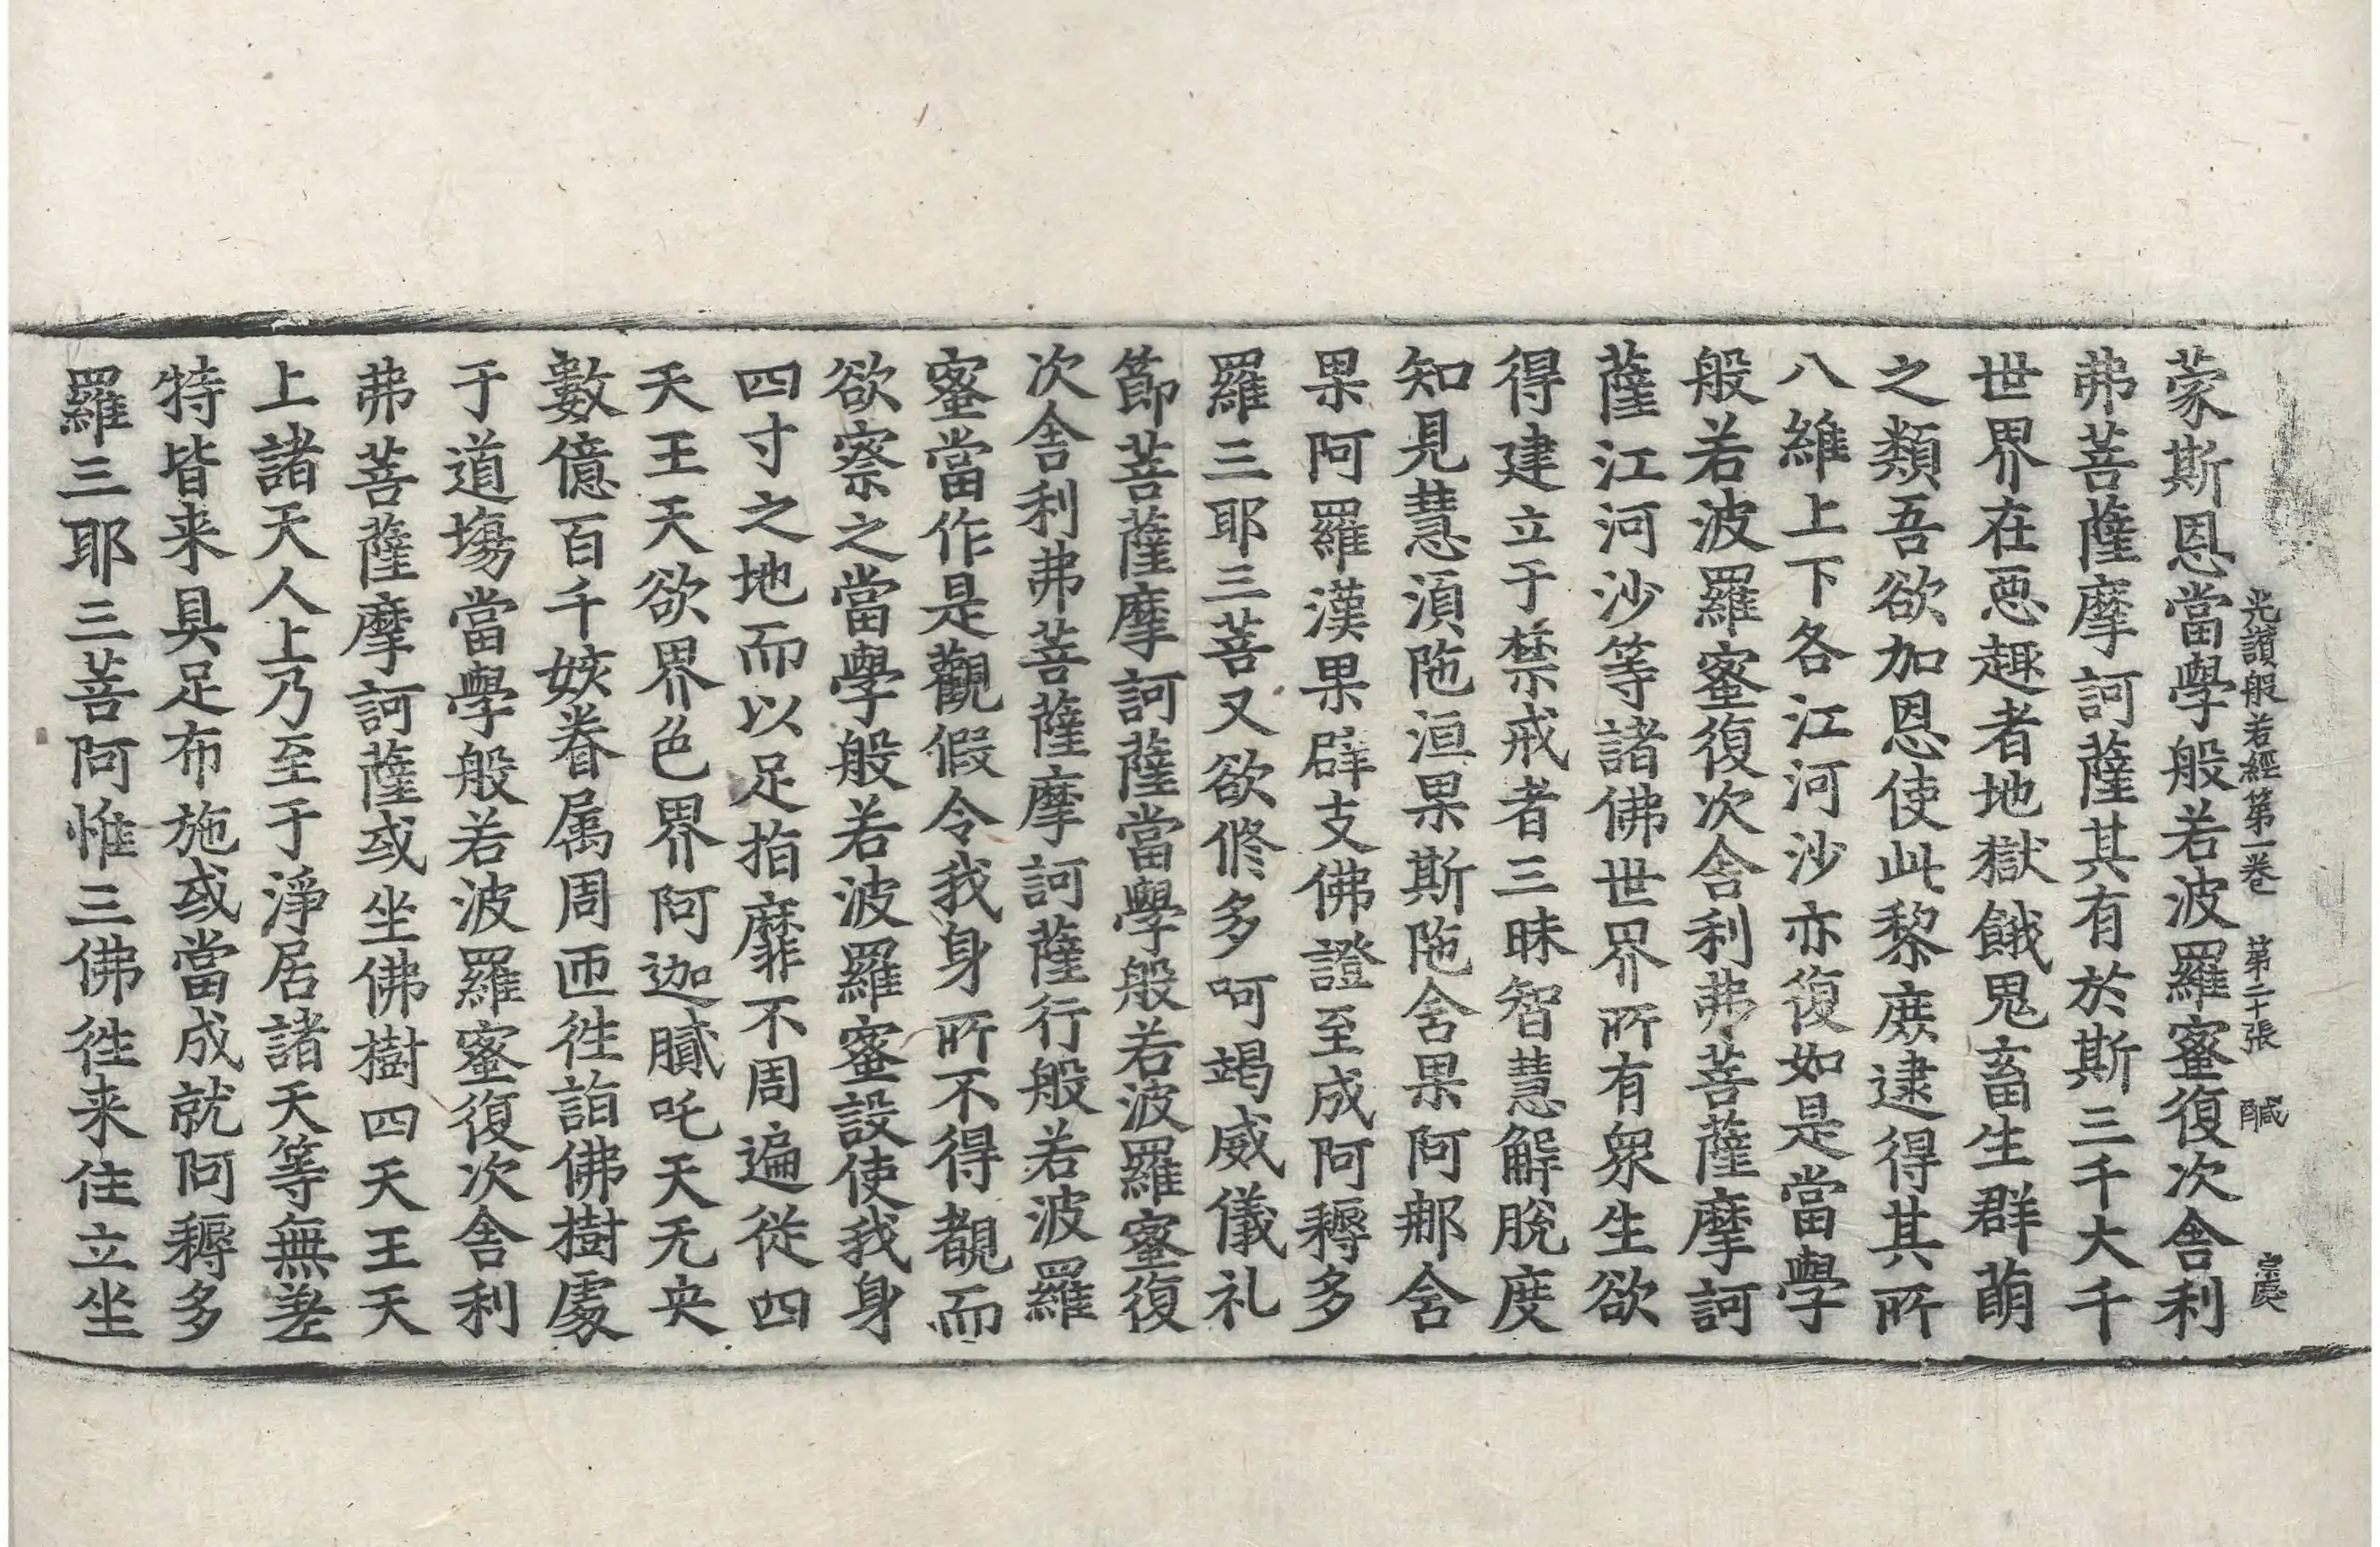 光讃般若經第一卷 第二十張 醎 宗庾
蒙斯恩當學般若波羅蜜復次舍利
弗菩薩摩訶薩其有於斯三千大千
世界在惡趣者地獄餓鬼畜生群萌
之類吾欲加恩使此黎庶逮得其所
八維上下各江河沙亦復如是當學
般若波羅蜜復次舍利弗菩薩摩訶
薩江河沙等諸佛世界所有衆生欲
得建立于禁戒者三昧智慧解脫度
知見慧湏陁洹果斯陁含果阿那含
果阿羅漢果辟支佛證至成阿耨多
羅三耶三菩又欲修多呵竭威儀礼
節菩薩摩訶薩當學般若波羅蜜復
次舍利弗菩薩摩訶薩行般若波羅
蜜當作是觀假令我身所不得覩而
欲察之當學般若波羅蜜設使我身
四寸之地而以足指靡不周遍從四
天王天欲界色界阿迦膩吒天无央
數億百千姟眷属周匝往詣佛樹處
于道場當學般若波羅蜜復次舍利
弗菩薩摩訶薩或坐佛樹四天王天
上諸天人上乃至于淨居諸天等無差
特皆来具足布施或當成就阿耨多
羅三耶三菩阿惟三佛往来住立坐